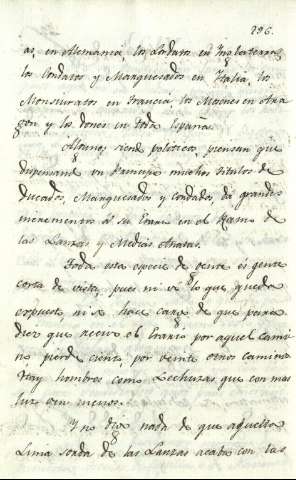 296.
as, en Alemania, los Lordatos en Inglaterra,
los Condatos y Marquesados en Italia, los
Monsiuratos en Francia, los Mesones en Ara
gon y los dones en toda España.
Algunos, siend politicos, piensan que
dispensand un Principe muchos titulos de
Ducados, Marquesados y Condados, dá grandes
incrementos á su Erario en el Ramo de
las Lanzas y Medias Anatas.
Toda esta especie de gente es gente
corta de vista, pues ni vé lo que queda
expuesto, ni se hace cargo de que para
diez que acerca el Erario por aquel cami
no pierde ciento, por veinte otros caminos.
Hay hombres como Lechuzas que con mas
luz ven menos.
Y no digo nada de que aquella
Lima sorda de las Lanzas acaba con las